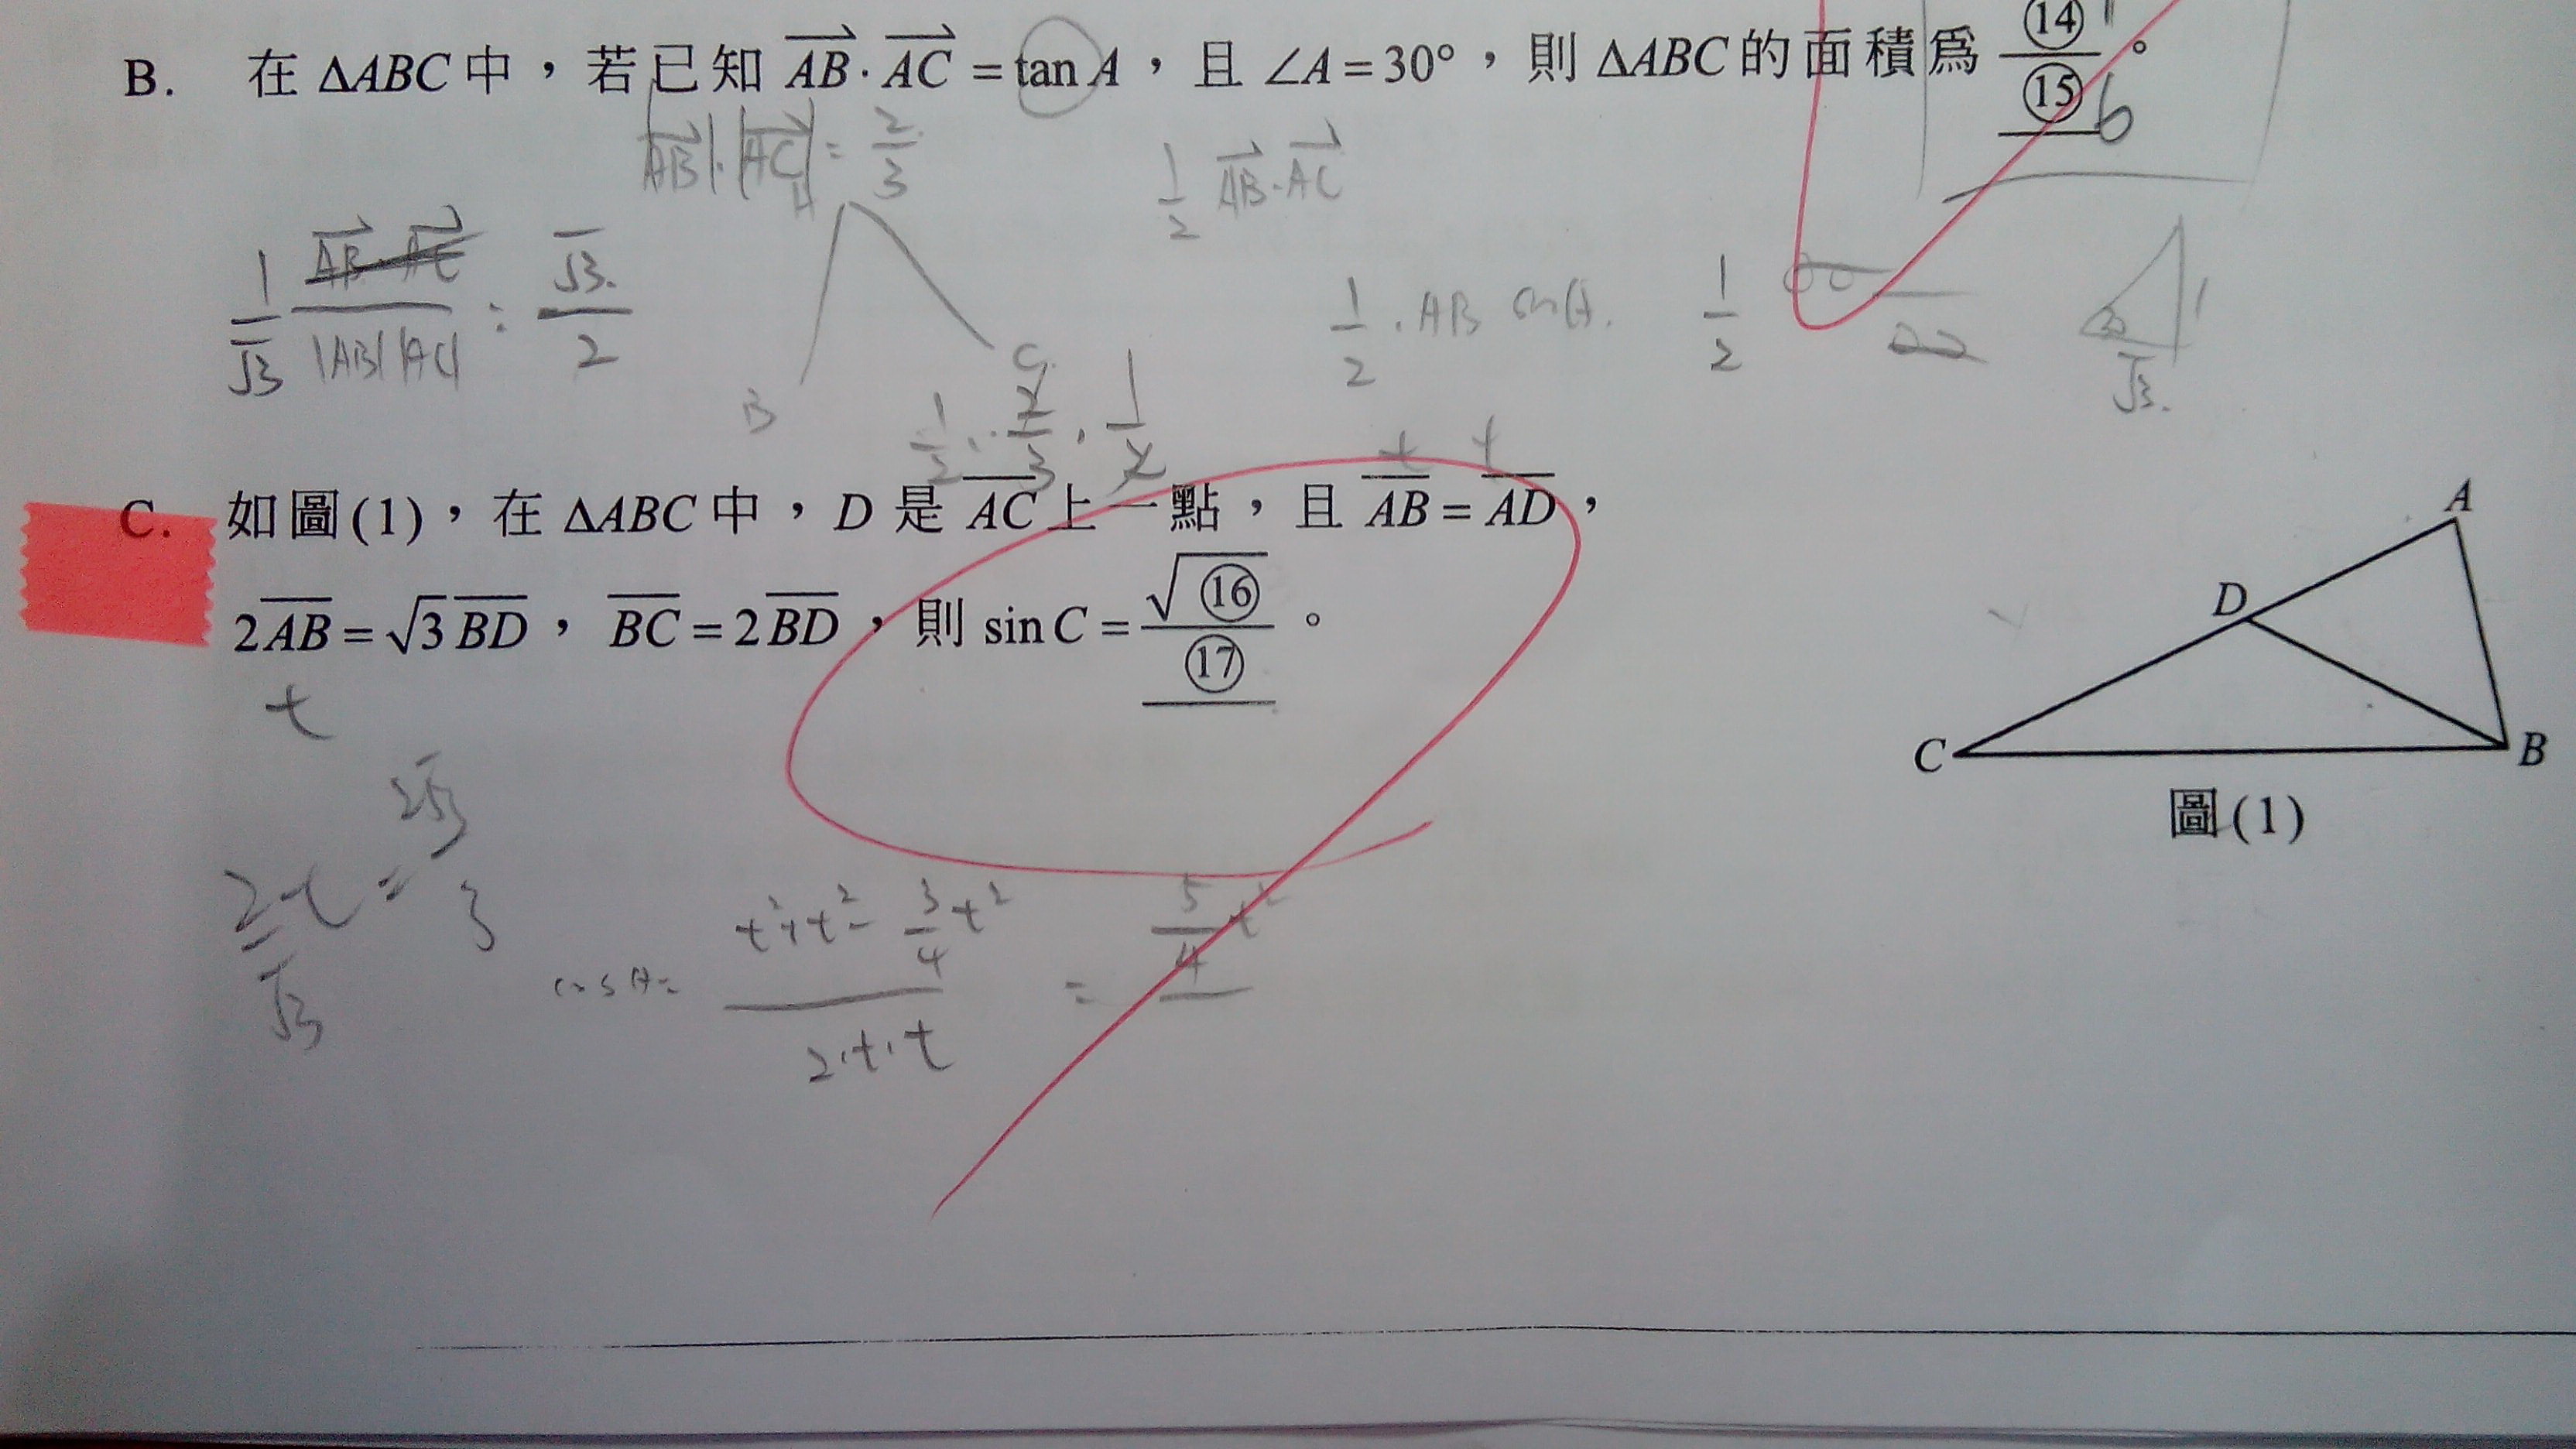 B. 在 ΔABC 中，若已知 $\overrightarrow{AB}\cdot\overrightarrow{AC}$ = tan A，且 ∠A = 30°，則 ΔABC 的面積爲 ⑭/⑮。
6
$|\overrightarrow{AB}|\cdot|\overrightarrow{AC}| = \frac{2}{3}$
$\frac{1}{2}\overrightarrow{AB}\cdot\overrightarrow{AC}$
A
$\frac{1}{\sqrt{3}}$ $\frac{\overrightarrow{AB}\cdot\overrightarrow{AC}}{|AB||AC|} = \frac{\sqrt{3}}{2}$
$\frac{1}{2}\cdot AB$
$\frac{1}{2}$
1
$\sqrt{3}$
B
C
$\frac{1}{2}\cdot\frac{2}{3}\cdot\frac{1}{2}$
t
C. 如圖(1)，在 ΔABC 中，D 是 $\overline{AC}$ 上一點，且 $\overline{AB} = \overline{AD}$，
2$\overline{AB}$ = √3 $\overline{BD}$，$\overline{BC}$ = 2$\overline{BD}$，則 sin C = √⑯/⑰。
t
A
D
C
B
圖(1)
$\frac{2}{\sqrt{3}}t = \frac{2\sqrt{3}}{3}$
cos A = $\frac{t^2+t^2-\frac{3}{4}t^2}{2\cdot t\cdot t}$ = $\frac{5}{4}t^2$